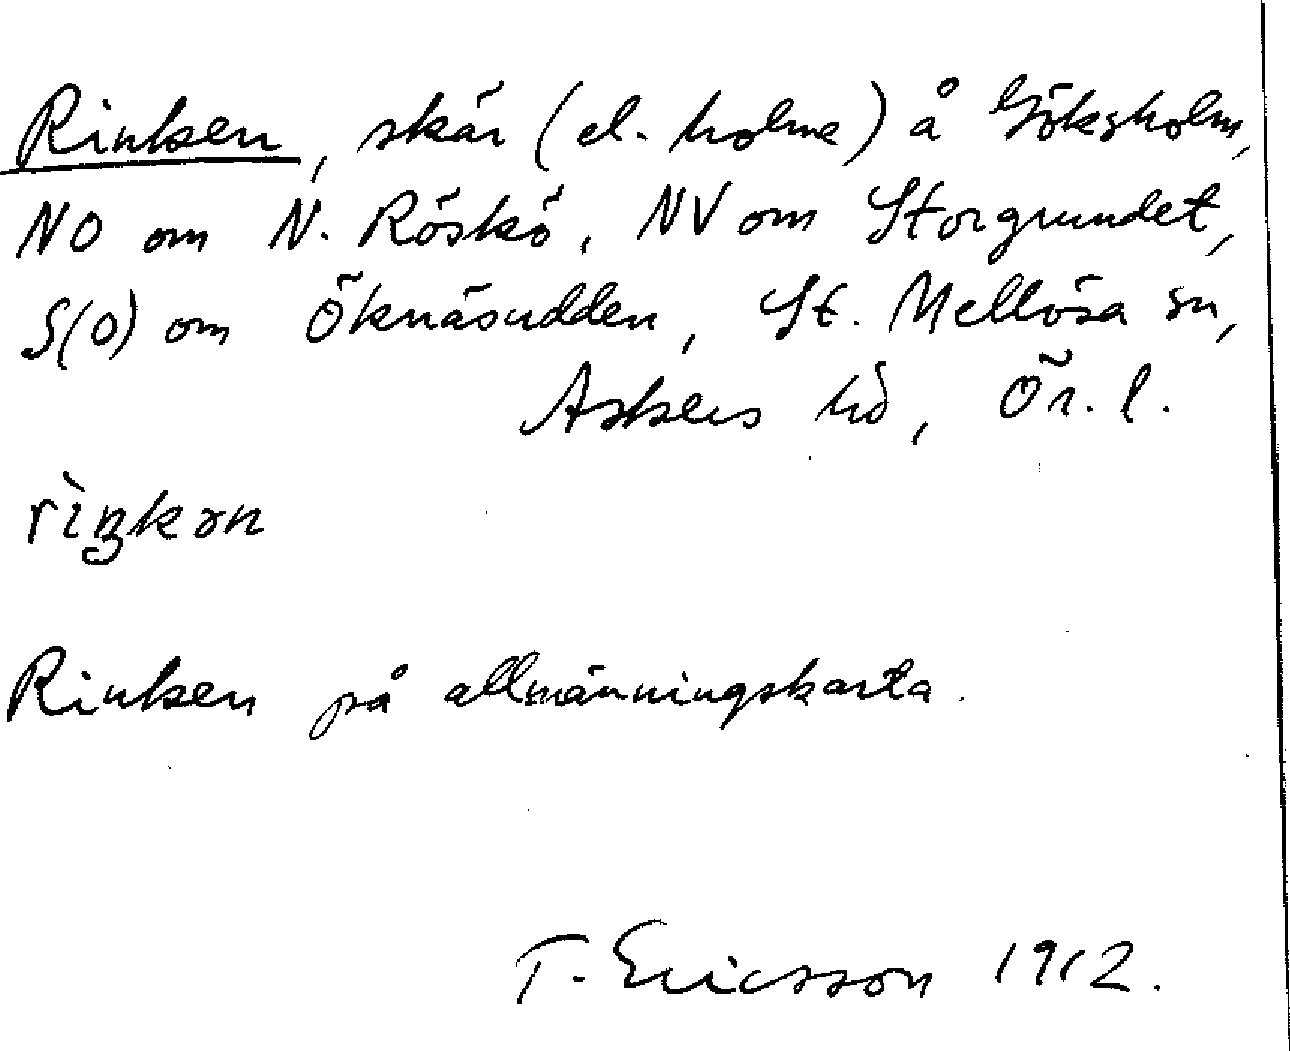 Rinken, skär (el. holme) å Göksholm,
NO om N. Röskö, NV om Storgrundet,
S(O) om Öknäsudden, St. Mellösa sn,
Askers hd, Ör. l.
rìŋkən
Rinken på allmänningskarta.
T. Ericsson 1912.